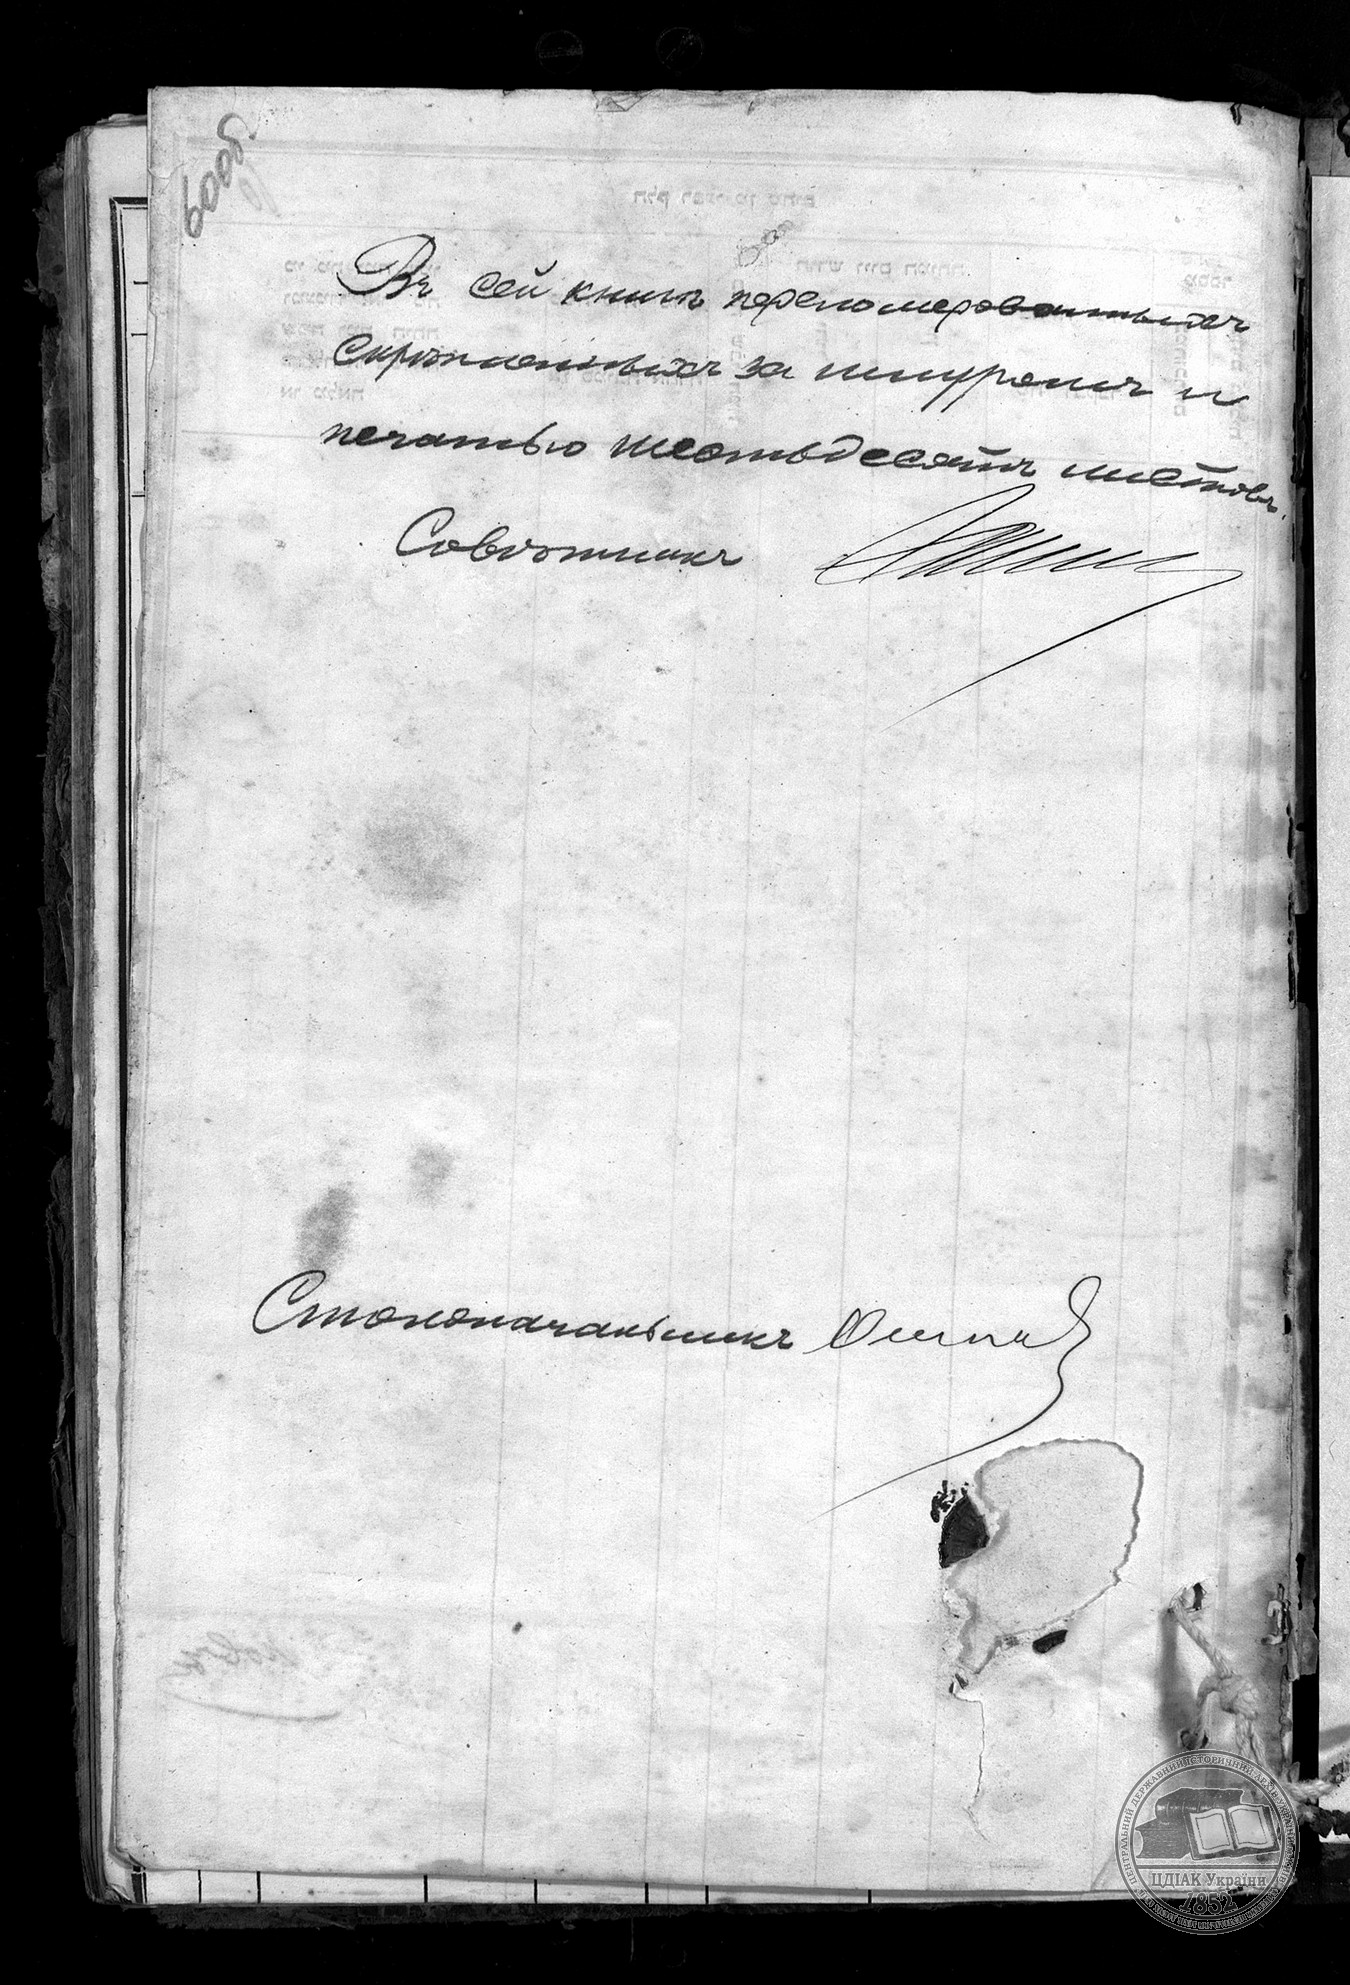 60об.
Въ сей книгѣ перенумерованныхъ
скрѣпленныхъ за шнуромъ и
печатью шестьдесятъ листовъ.
Совѣтникъ
Столоначальникъ
ЦЕНТРАЛЬНИЙ ДЕРЖАВНИЙ ІСТОРИЧНИЙ АРХІВ УКРАЇНИ
ЦДІАК України
1852